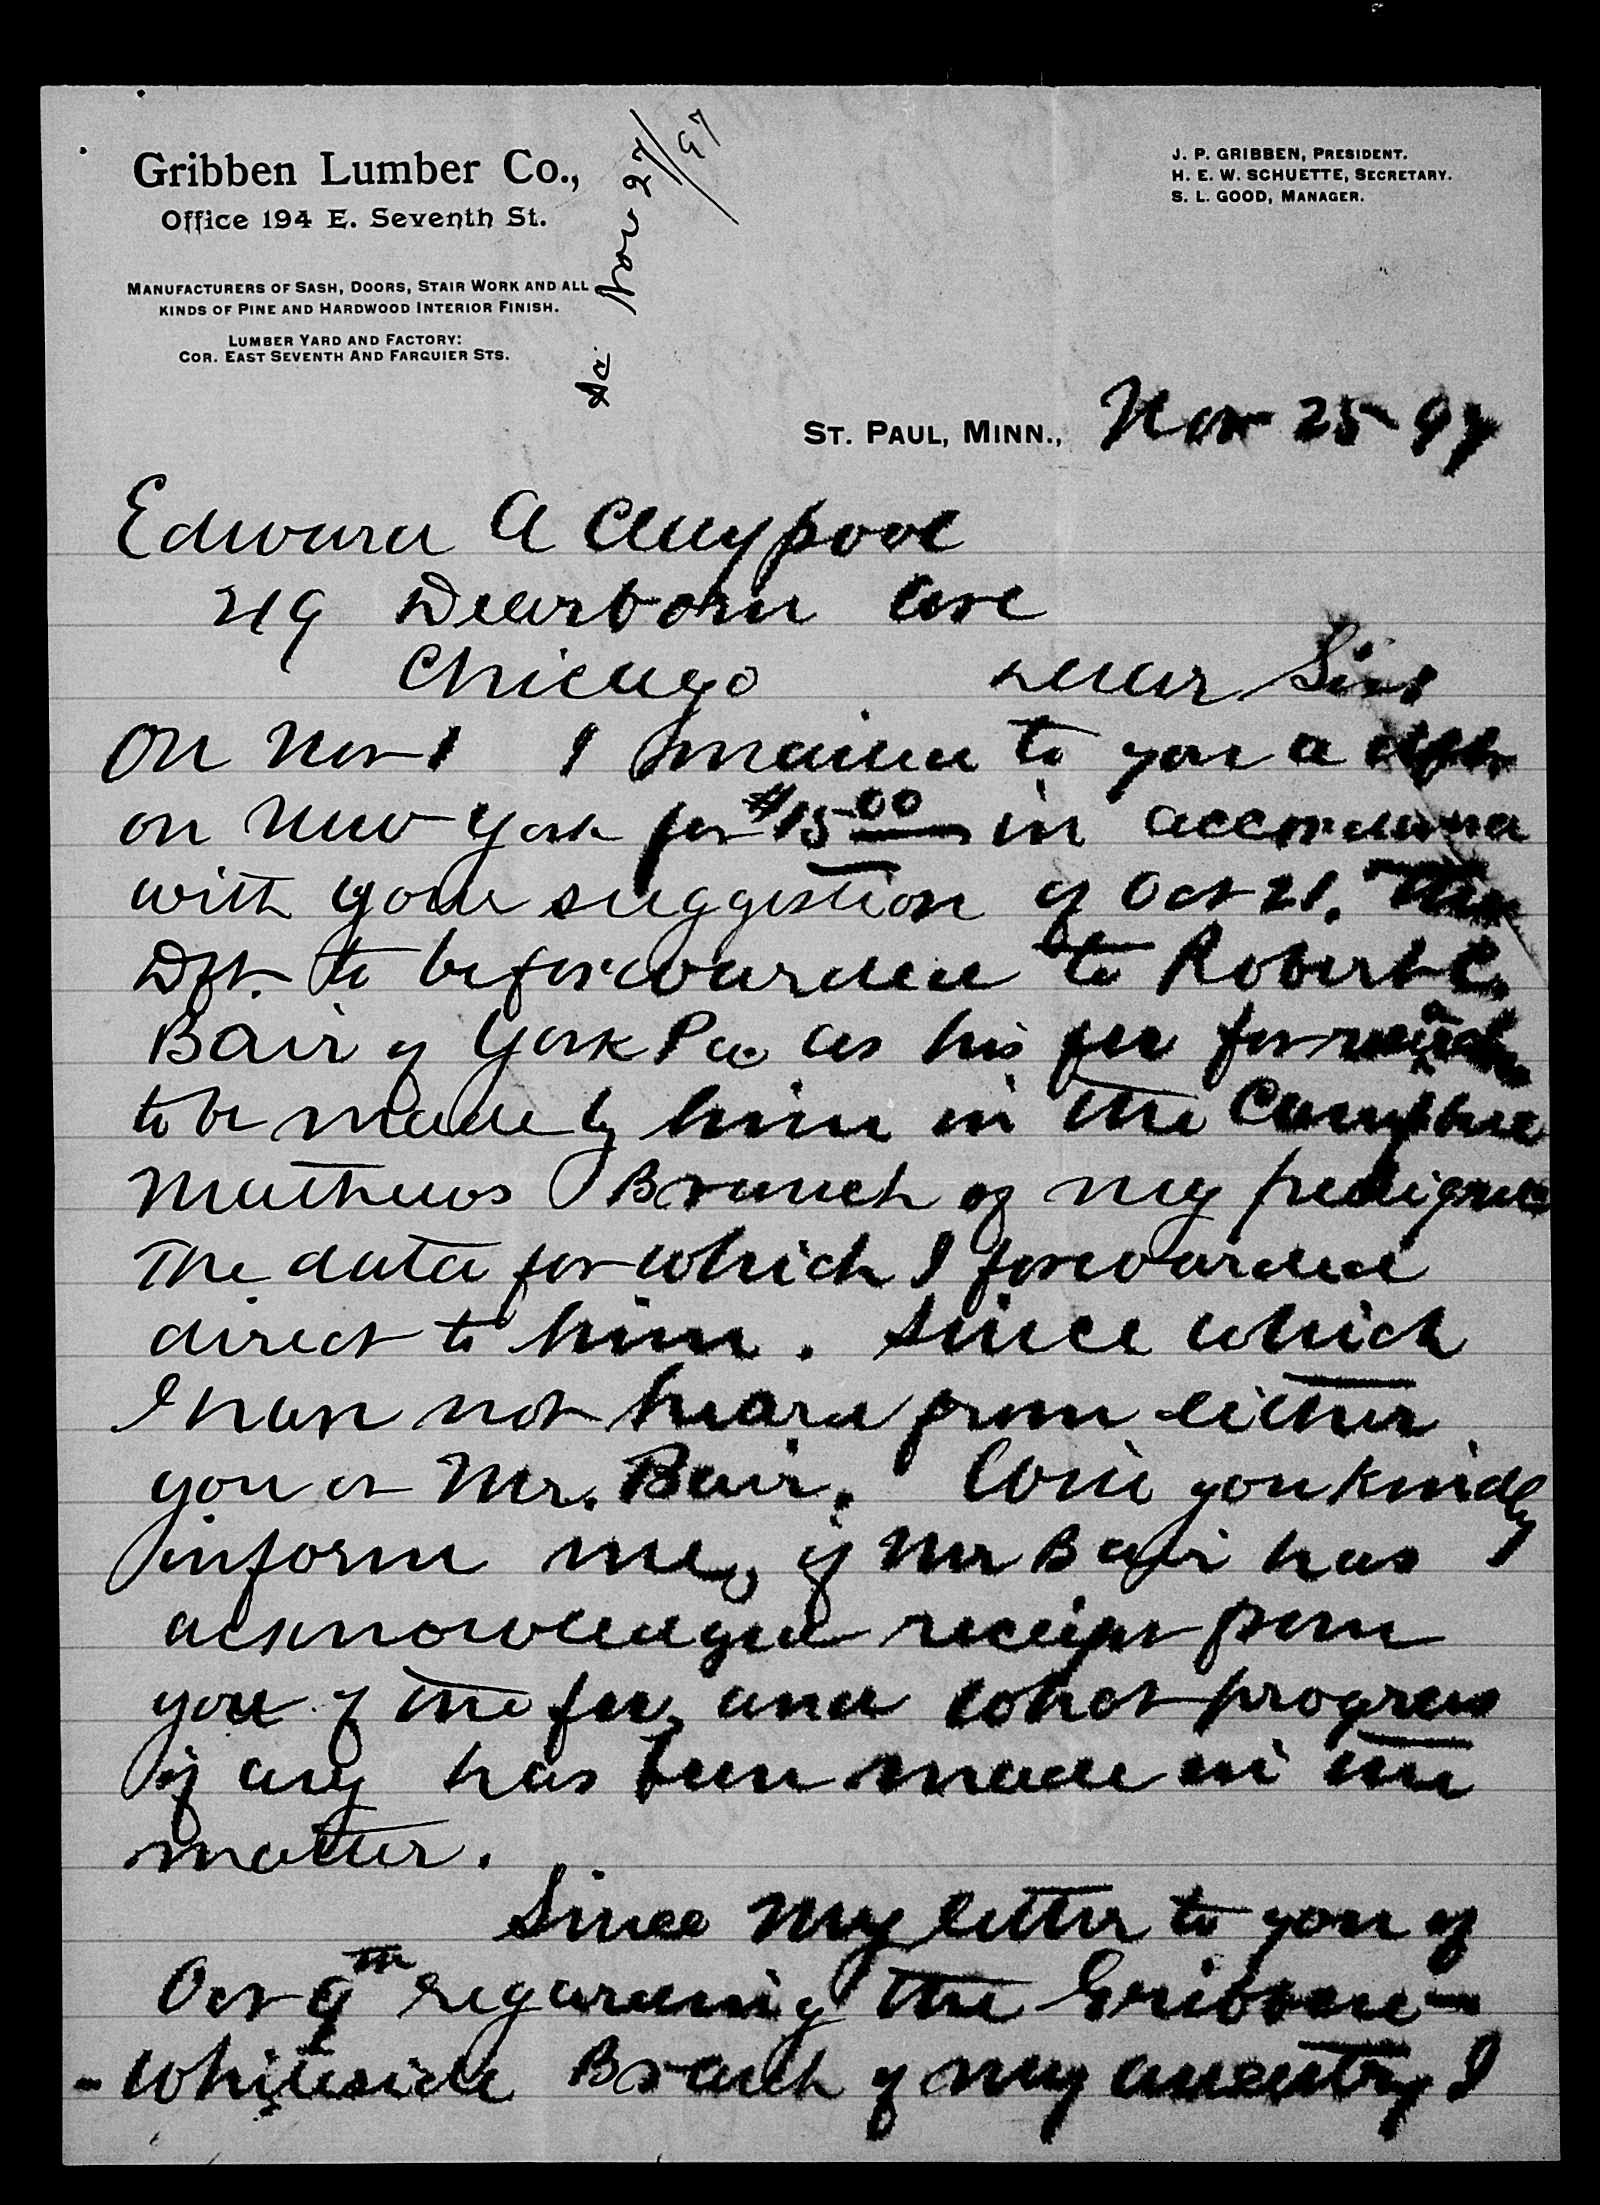 Gribben Lumber Co.,
Office 194 E. Seventh St.
Manufacturers of Sash, Doors, Stair Work and all
kinds of Pine and Hardwood Interior Finish.
Lumber Yard and Factory:
Cor. East Seventh and Farquier Sts.
Nov 27/97
J. P. Gribben, President.
H. E. W. Schuette, Secretary.
S. L. Good, Manager.
St. Paul, Minn., Nov 25-97
Edward A Claypool
219 Dearborn Ave
Chicago Dear Sir
On Nov 1 I mailed to you a dft
on New York for $15 00 in accordance
with your suggestion of Oct 21. This
Dft. to be forwarded to Robert C.
Bair of York Pa as his fee for
to be made by him in the
Mathews Branch of my pedigree
The data for which I forwarded
direct to him. Since which
I have not heard from either
you or Mr. Bair. Will you kindly
inform me, if Mr Bair has
acknowledged receipt from
you of the fee, and what progress
if any has been made in the
matter.
Since my letter to you of
Oct 9th regarding the Gribben-
-Whiteside Branch of my ancestry I